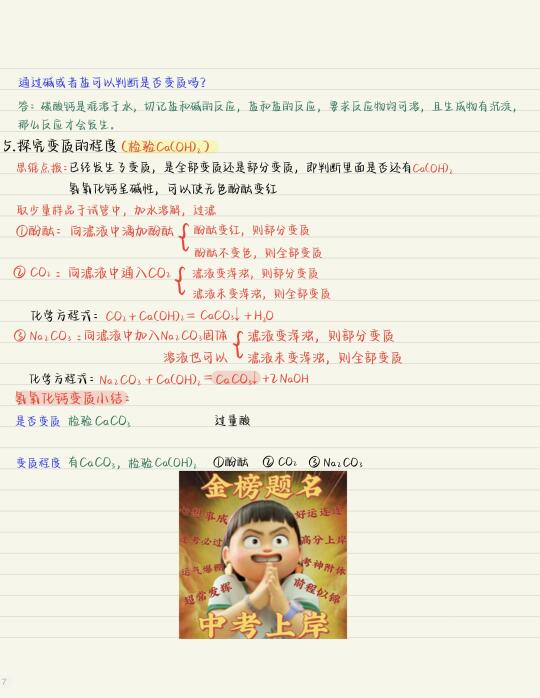 通过碱或者盐可以判断是否变质吗？
答：碳酸钙是难溶于水，切记盐和碱的反应，盐和盐的反应，要求反应物均可溶，且生成物有沉淀，
那么反应才会发生。
5.探究变质的程度（检验Ca(OH)₂）
思路点拨：已经发生了变质，是全部变质还是部分变质，即判断里面是否还有Ca(OH)₂
氢氧化钙呈碱性，可以使无色酚酞变红
取少量样品于试管中，加水溶解，过滤
①酚酞：向滤液中滴加酚酞 酚酞变红，则部分变质
酚酞不变色，则全部变质
② CO₂：向滤液中通入CO₂ 滤液变浑浊，则部分变质
滤液未变浑浊，则全部变质
化学方程式：CO₂+Ca(OH)₂= CaCO₃↓+H₂O
③ Na₂CO₃：向滤液中加入Na₂CO₃固体 滤液变浑浊，则部分变质
溶液也可以 滤液未变浑浊，则全部变质
化学方程式：Na₂CO₃+Ca(OH)₂=CaCO₃↓+2NaOH
氢氧化钙变质小结：
是否变质 检验CaCO₃ 过量酸
变质程度 有CaCO₃，检验Ca(OH)₂ ①酚酞 ② CO₂ ③ Na₂CO₃
金榜题名
心想事成 好运连连
逢考必过 高分上岸
运气爆棚 考神附体
超常发挥 前程似锦
中考上岸
7